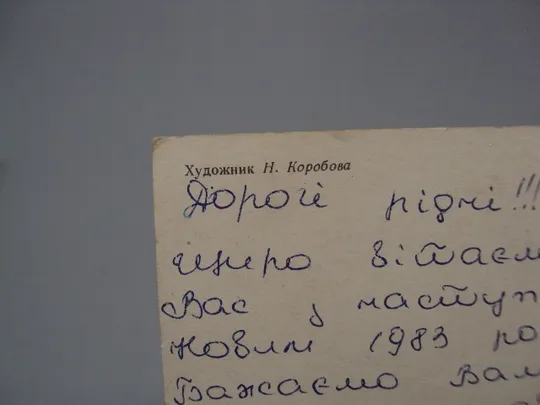 Художник Н. Коробова
Дорогі рідні!!!
щиро вітаєм
Вас з наступ
Новим 1983 ро
Бажаємо Вам